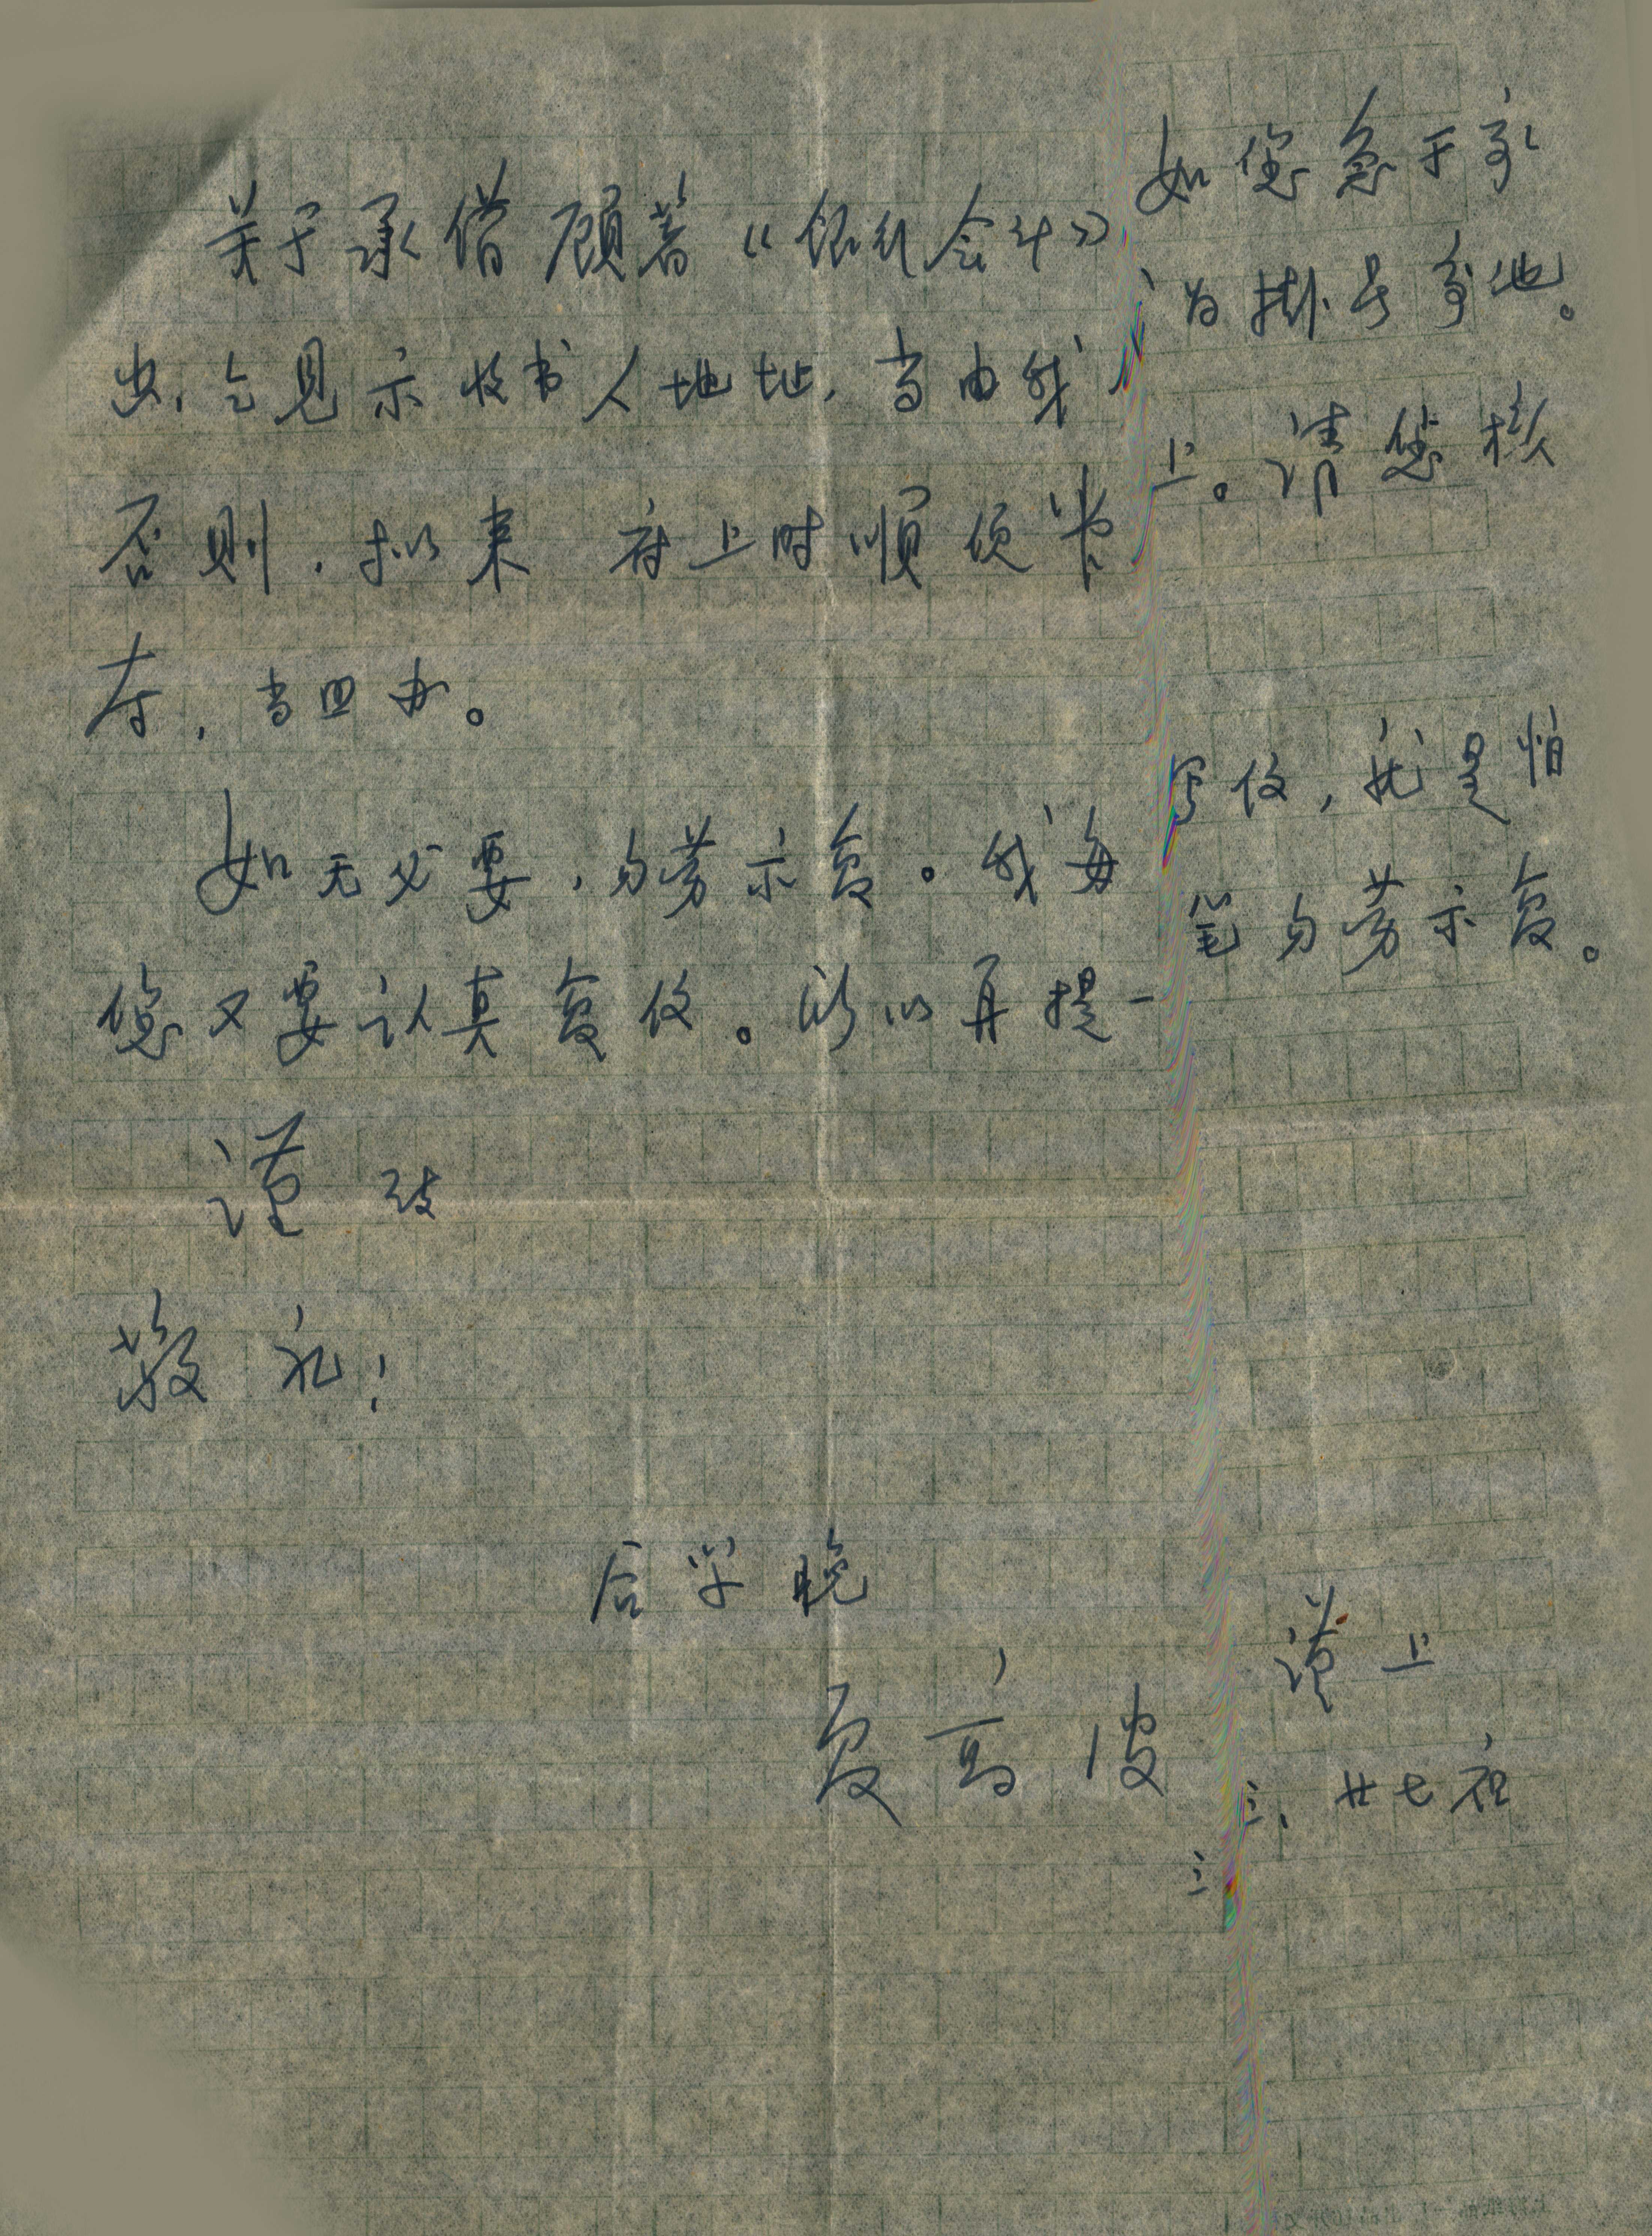 关于承借顾著《银行会计》如您急于寄
出,乞见示收书人地址,当由我为挂号寄也。
否则,拟来 府上时顺便带上。请您核
存,当四办。
如无必要,勿劳示复。我每写信,就是怕
您又要认真复信。所以再提一笔勿劳示复。
谨致
敬礼!
后学晚
夏高波 谨上
三、廿七夜